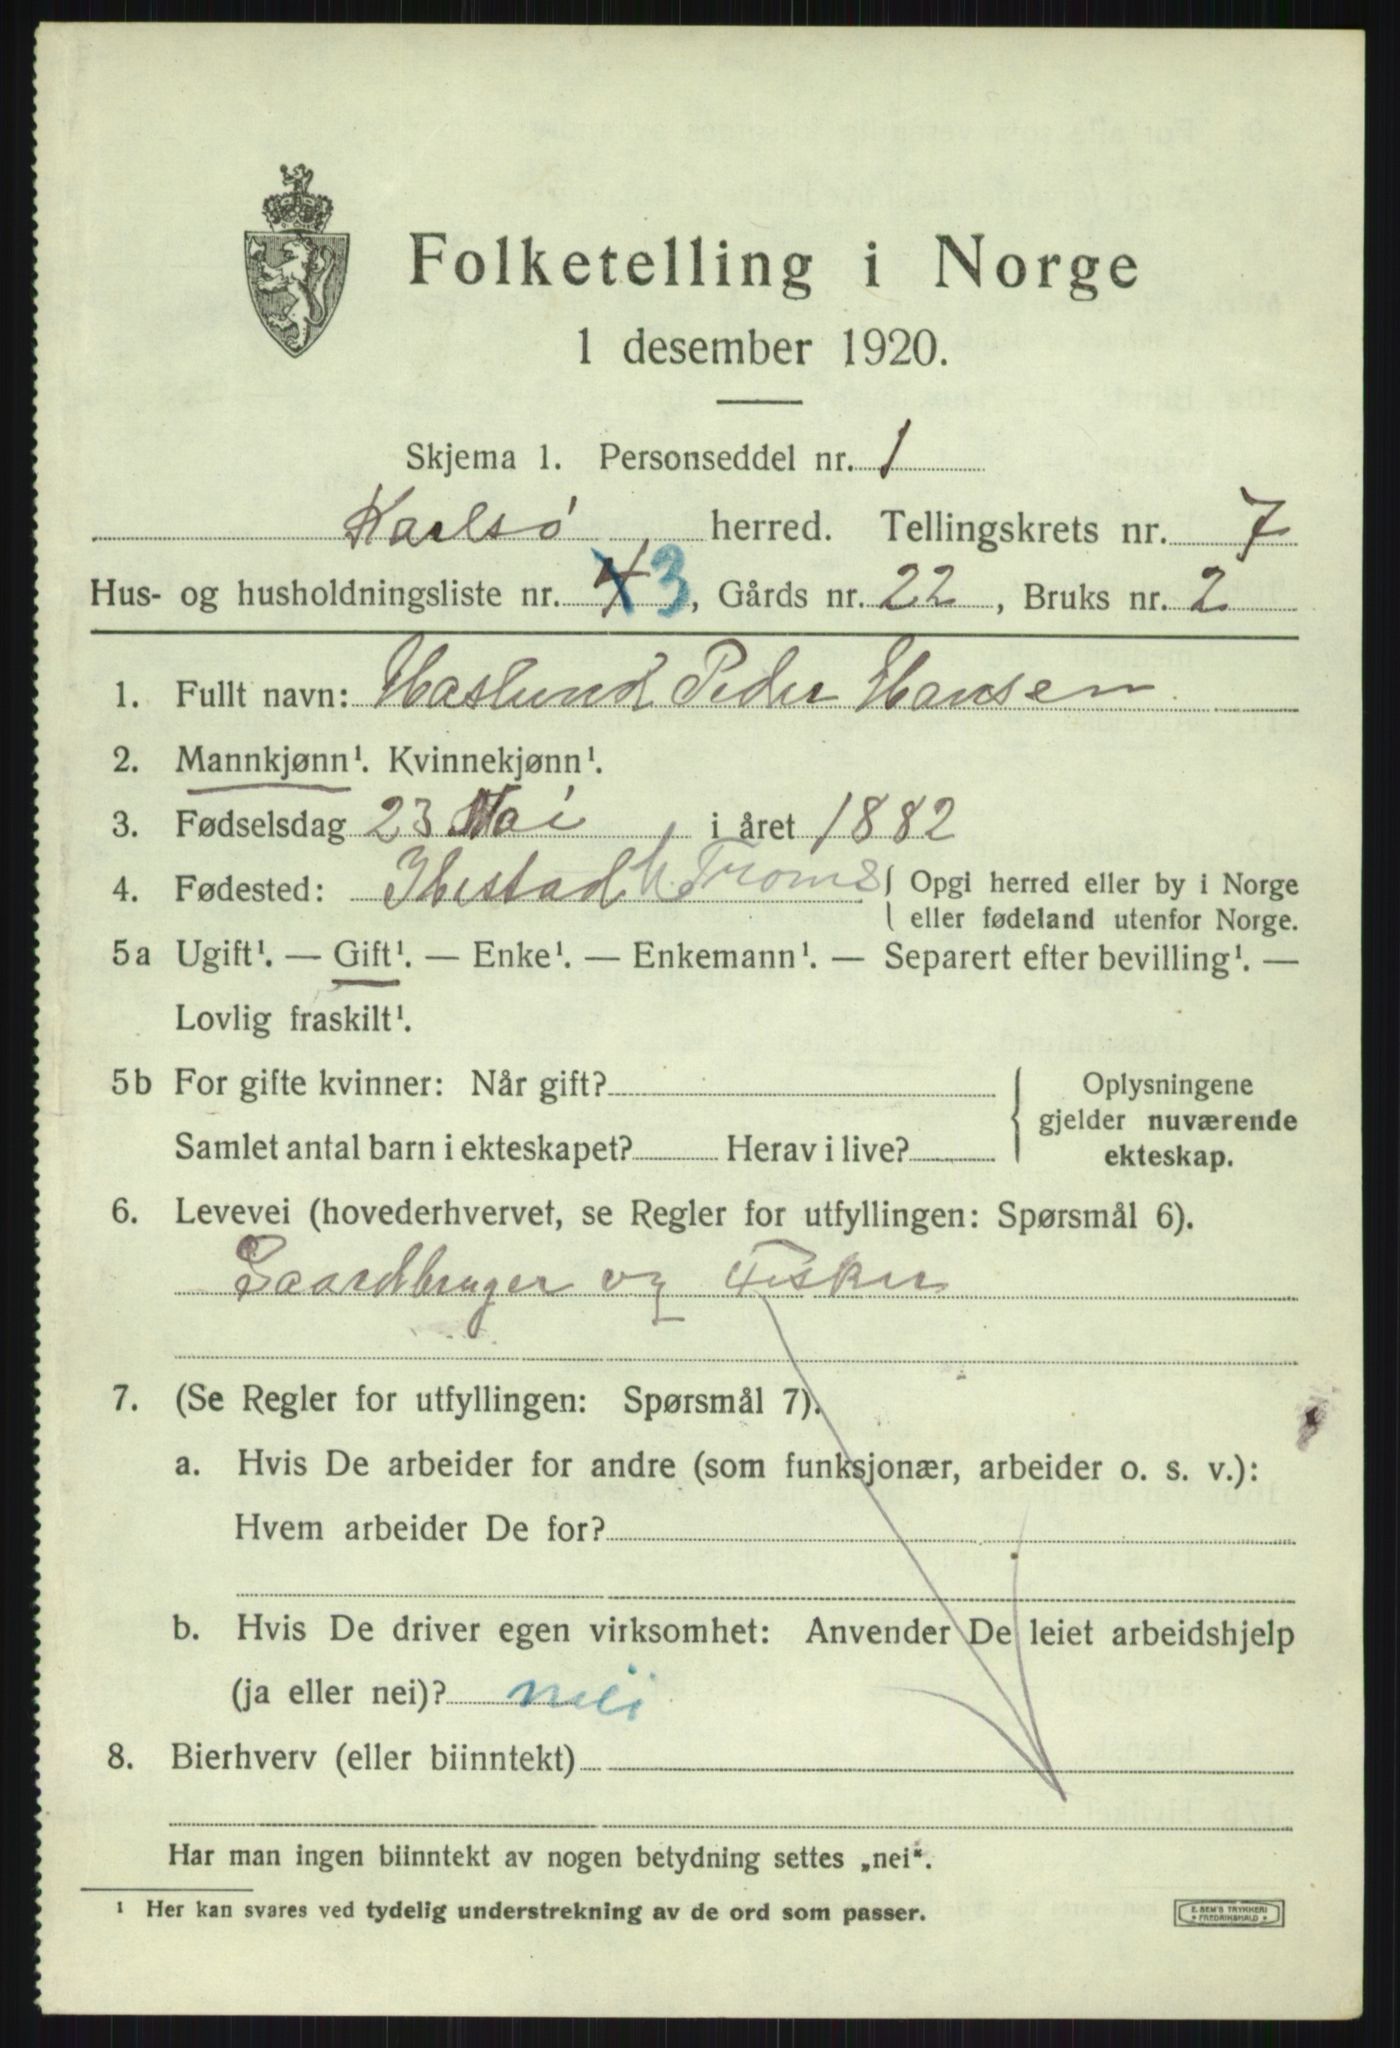 Folketelling i Norge
1 desember 1920.
Skjema 1. Personseddel nr. 1
Karlsö herred. Tellingskrets nr. 7
Hus- og husholdningsliste nr. 4 3, Gårds nr. 22, Bruks nr. 2
1. Fullt navn: Haslund Peder Hansen
2. Mannkjønn¹. Kvinnekjønn¹.
3. Fødselsdag 23 Mai i året 1882
4. Fødested: Ibestad Troms { Opgi herred eller by i Norge
eller fødeland utenfor Norge.
5a Ugift¹. — Gift¹. — Enke¹. — Enkemann¹. — Separert efter bevilling¹. —
Lovlig fraskilt¹.
5b For gifte kvinner: Når gift? { Oplysningene
gjelder nuværende
Samlet antal barn i ekteskapet? Herav i live? ekteskap.
6. Levevei (hovederhvervet, se Regler for utfyllingen: Spørsmål 6).
Gaardbruger og Fisker
7. (Se Regler for utfyllingen: Spørsmål 7).
a. Hvis De arbeider for andre (som funksjonær, arbeider o. s. v.):
Hvem arbeider De for?
b. Hvis De driver egen virksomhet: Anvender De leiet arbeidshjelp
(ja eller nei)? nei
8. Bierhverv (eller biinntekt)
Har man ingen biinntekt av nogen betydning settes „nei“.
¹ Her kan svares ved tydelig understrekning av de ord som passer.
E. SEM'S TRYKKERI
FREDRIKSHALD